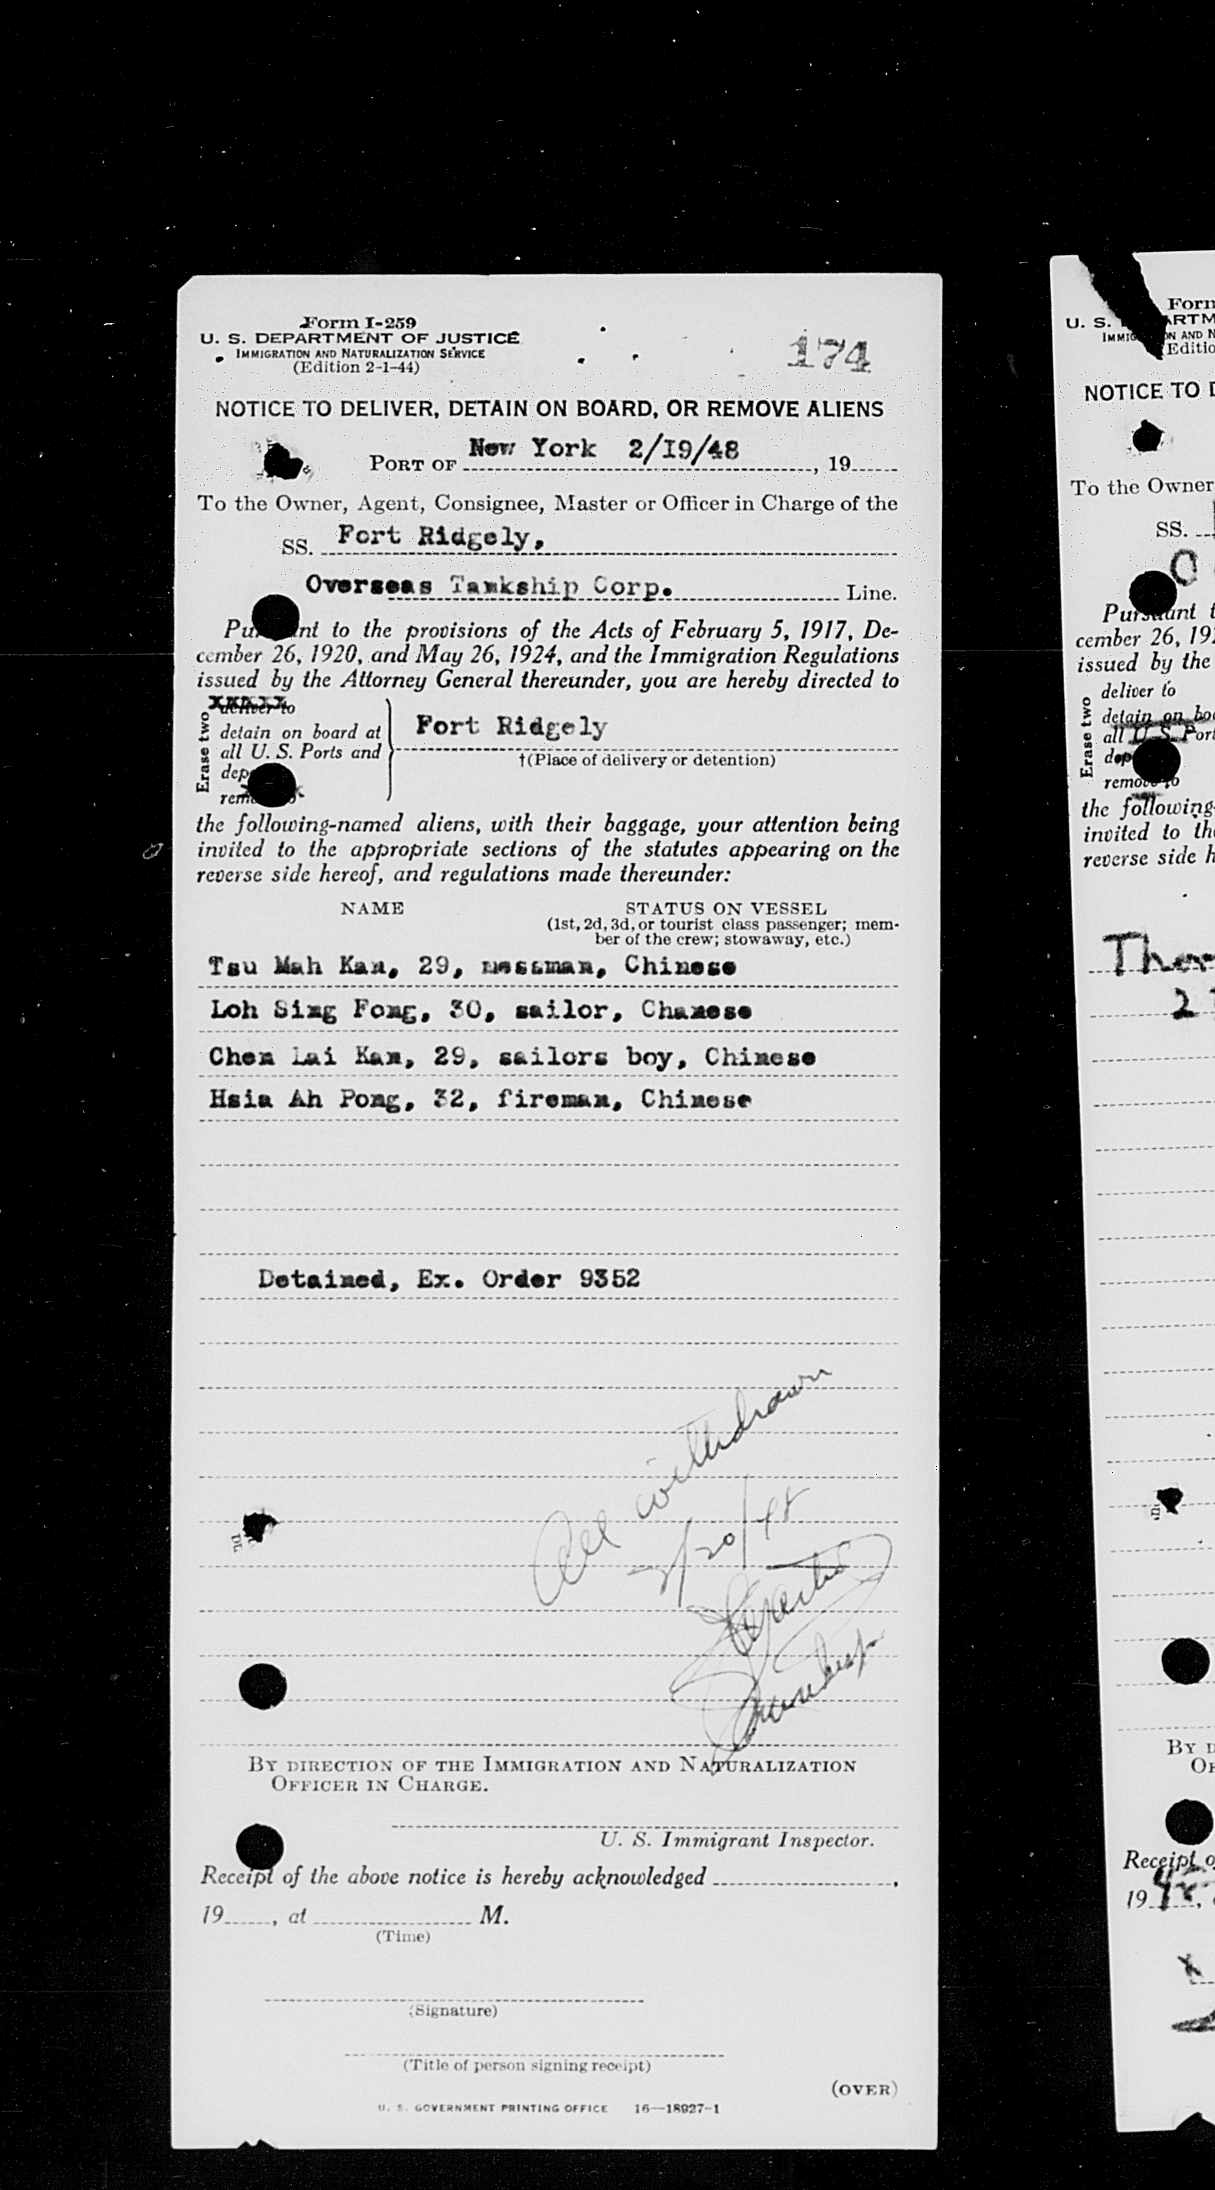 Form I-259
U. S. DEPARTMENT OF JUSTICE
IMMIGRATION AND NATURALIZATION SERVICE
(Edition 2-1-44)
174
NOTICE TO DELIVER, DETAIN ON BOARD, OR REMOVE ALIENS
PORT OF New York 2/19/48, 19
To the Owner, Agent, Consignee, Master or Officer in Charge of the
SS. Fort Ridgely,
Overseas Tankship Corp. Line.
Pursuant to the provisions of the Acts of February 5, 1917, De-
cember 26, 1920, and May 26, 1924, and the Immigration Regulations
issued by the Attorney General thereunder, you are hereby directed to
Erase two
deliver to
detain on board at
all U. S. Ports and
dep
remove to
Fort Ridgely
†(Place of delivery or detention)
the following-named aliens, with their baggage, your attention being
invited to the appropriate sections of the statutes appearing on the
reverse side hereof, and regulations made thereunder:
NAME STATUS ON VESSEL
(1st, 2d, 3d, or tourist class passenger; mem-
ber of the crew; stowaway, etc.)
Tsu Mah Kan, 29, messman, Chinese
Loh Sing Fong, 30, sailor, Chanese
Chen Lai Kan, 29, sailors boy, Chinese
Hsia Ah Pong, 32, fireman, Chinese
Detained, Ex. Order 9352
All withdrawn
2/20/48
BY DIRECTION OF THE IMMIGRATION AND NATURALIZATION
OFFICER IN CHARGE.
U. S. Immigrant Inspector.
Receipt of the above notice is hereby acknowledged ,
19 , at M.
(Time)
(Signature)
(Title of person signing receipt)
(OVER)
U. S. GOVERNMENT PRINTING OFFICE 16—18927-1
Form
U. S.
NOTICE TO
To the Owner
SS.
Pursuant
cember 26, 19
issued by the
Erase two
deliver to
detain on
all U. S. Por
dep
remove to
the following
invited to
reverse side
2
BY
Receipt
19